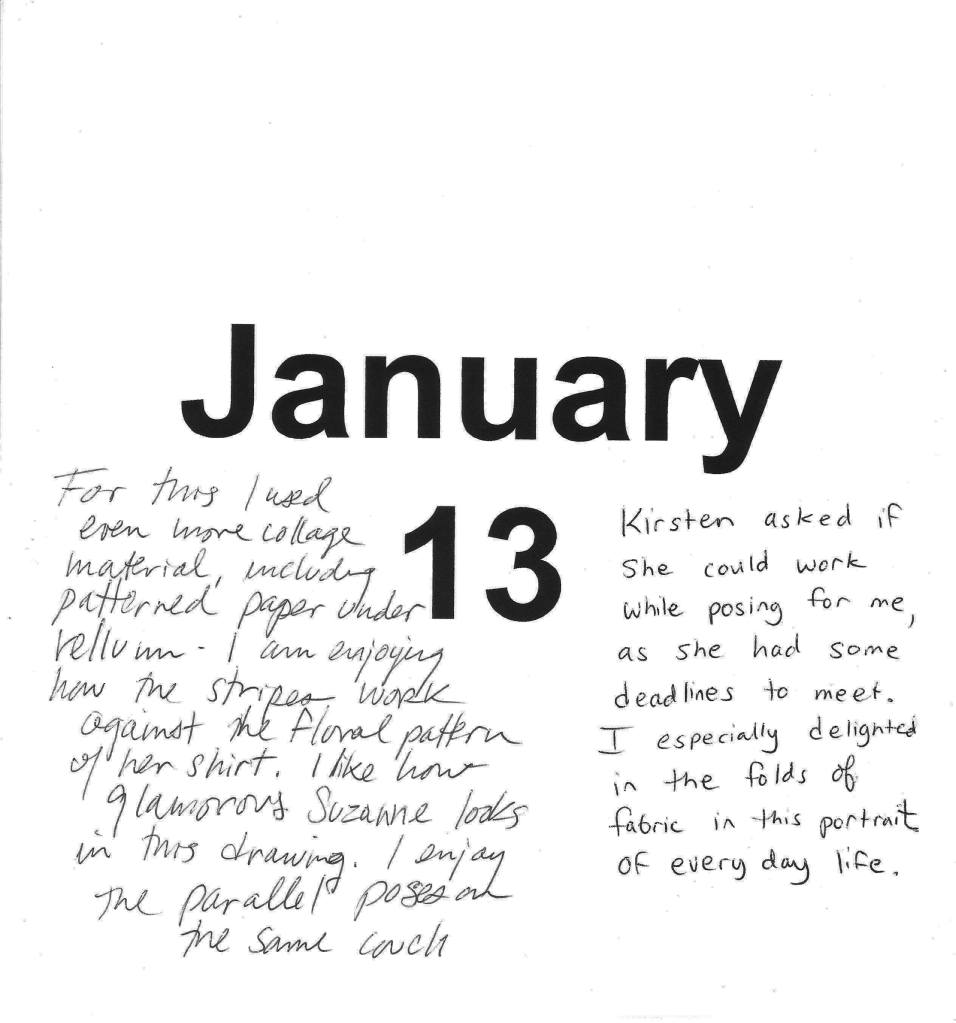 January
13
For this I used
even more collage
material, including
patterned paper under
vellum - I am enjoying
how the stripes work
against the floral pattern
of her shirt. I like how
glamorous Suzanne looks
in this drawing. I enjoy
the parallel poses on
the same couch
Kirsten asked if
she could work
while posing for me,
as she had some
deadlines to meet.
I especially delighted
in the folds of
fabric in this portrait
of every day life.